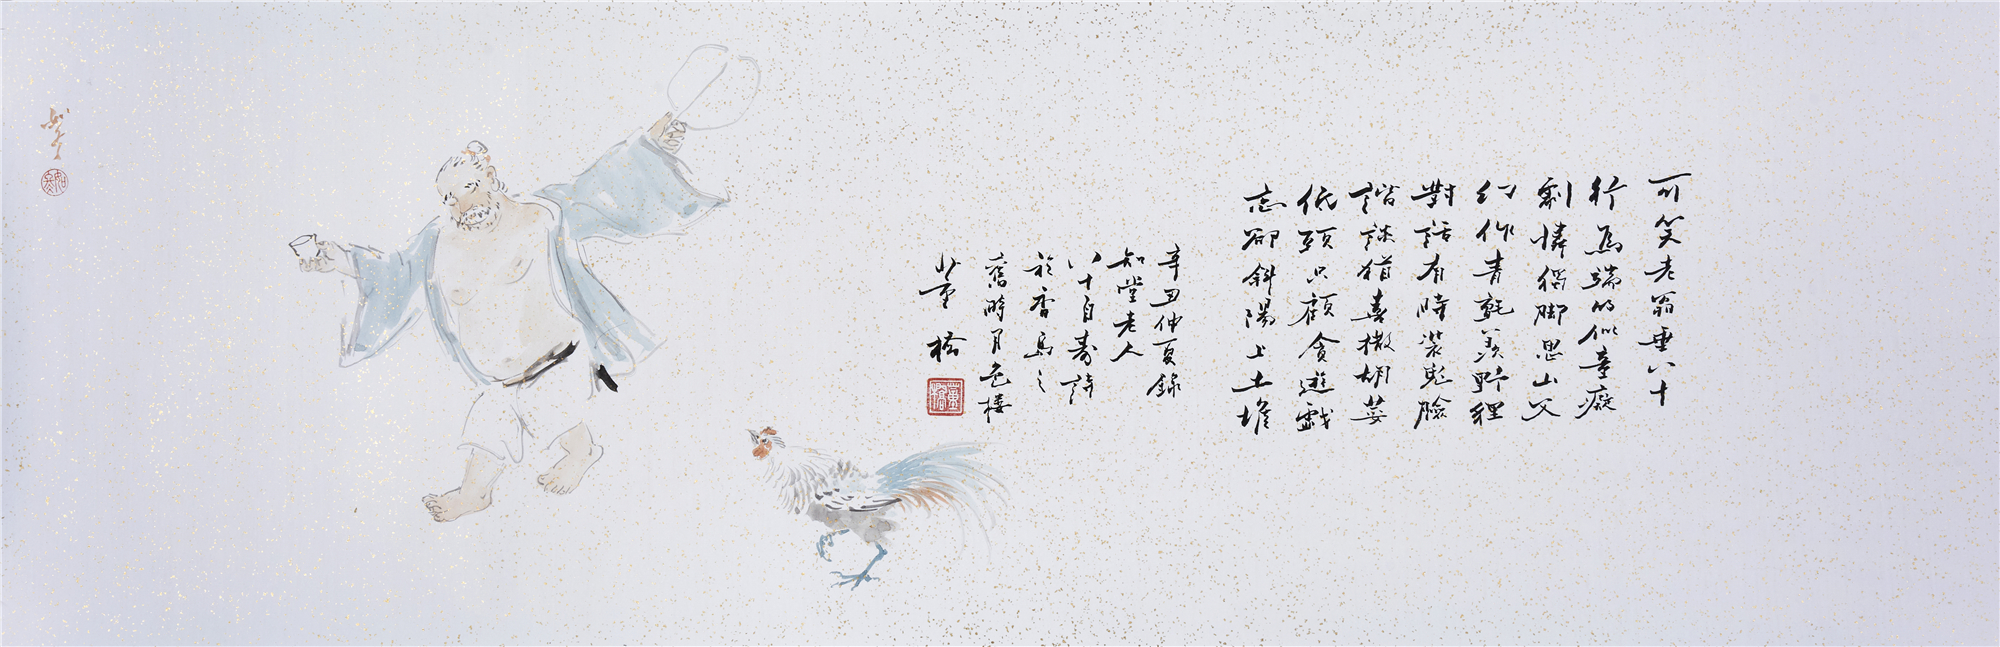 可笑老翁垂八十
行為端的似童癡
劇憐獨脚思山父
幻作青氈羨野狸
對話有時裝鬼臉
諧談猶喜撒胡荽
低頭只顧貪遊戲
忘卻斜陽上土堆
辛丑仲夏錄
知堂老人
八十自壽詩
於香島之
舊時月色樓
董橋
董橋